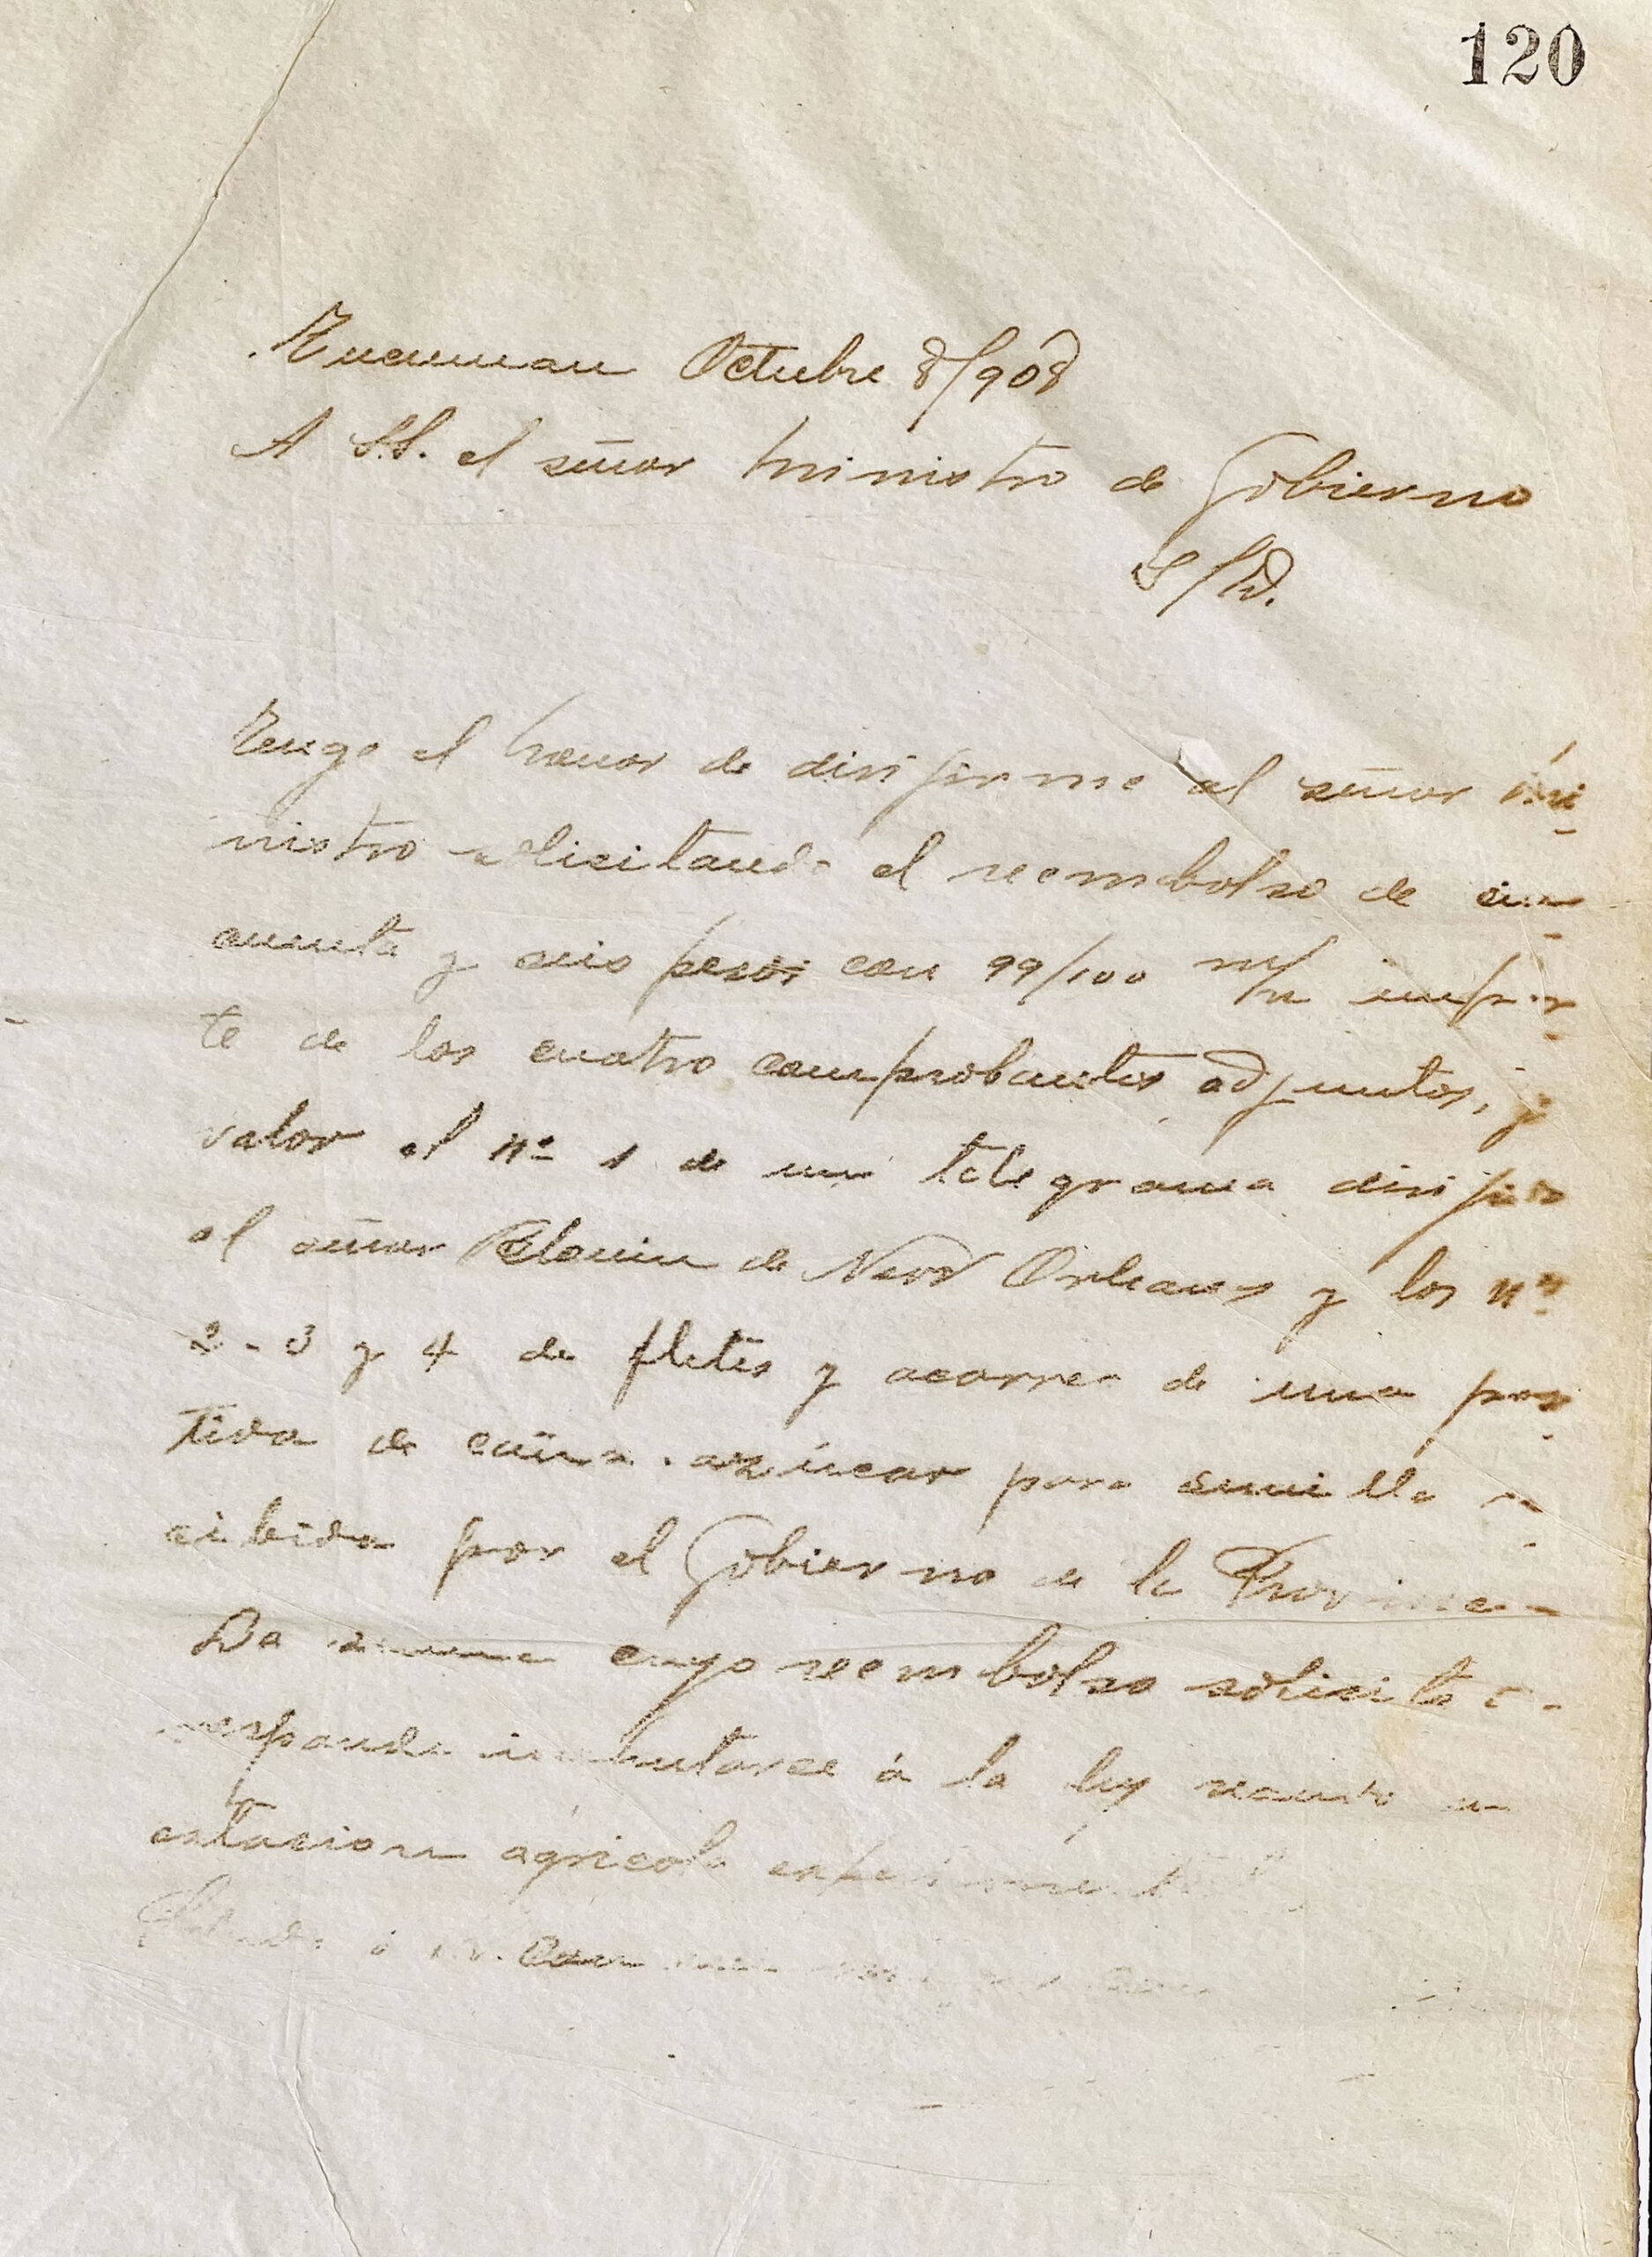 120
Tucuman Octubre 8/908
A S.S. el señor Ministro de Gobierno
S/D.
Tengo el honor de dirijirme al señor Mi-
nistro solicitando el reembolso de cin-
cuenta y seis pesos con 99/100 m/n impor-
te de los cuatro comprobantes adjuntos,
valor el nº 1 de un telegrama dirijido
al señor de New Orleans y los nos
2-3 y 4 de fletes y acarreo de una par-
tida de caña-azúcar para semilla re-
cibida por el Gobierno de la Provincia
La suma cuyo reembolso solicito co-
rresponde imputarse á la ley
estacion agricola experimental
Saludo á